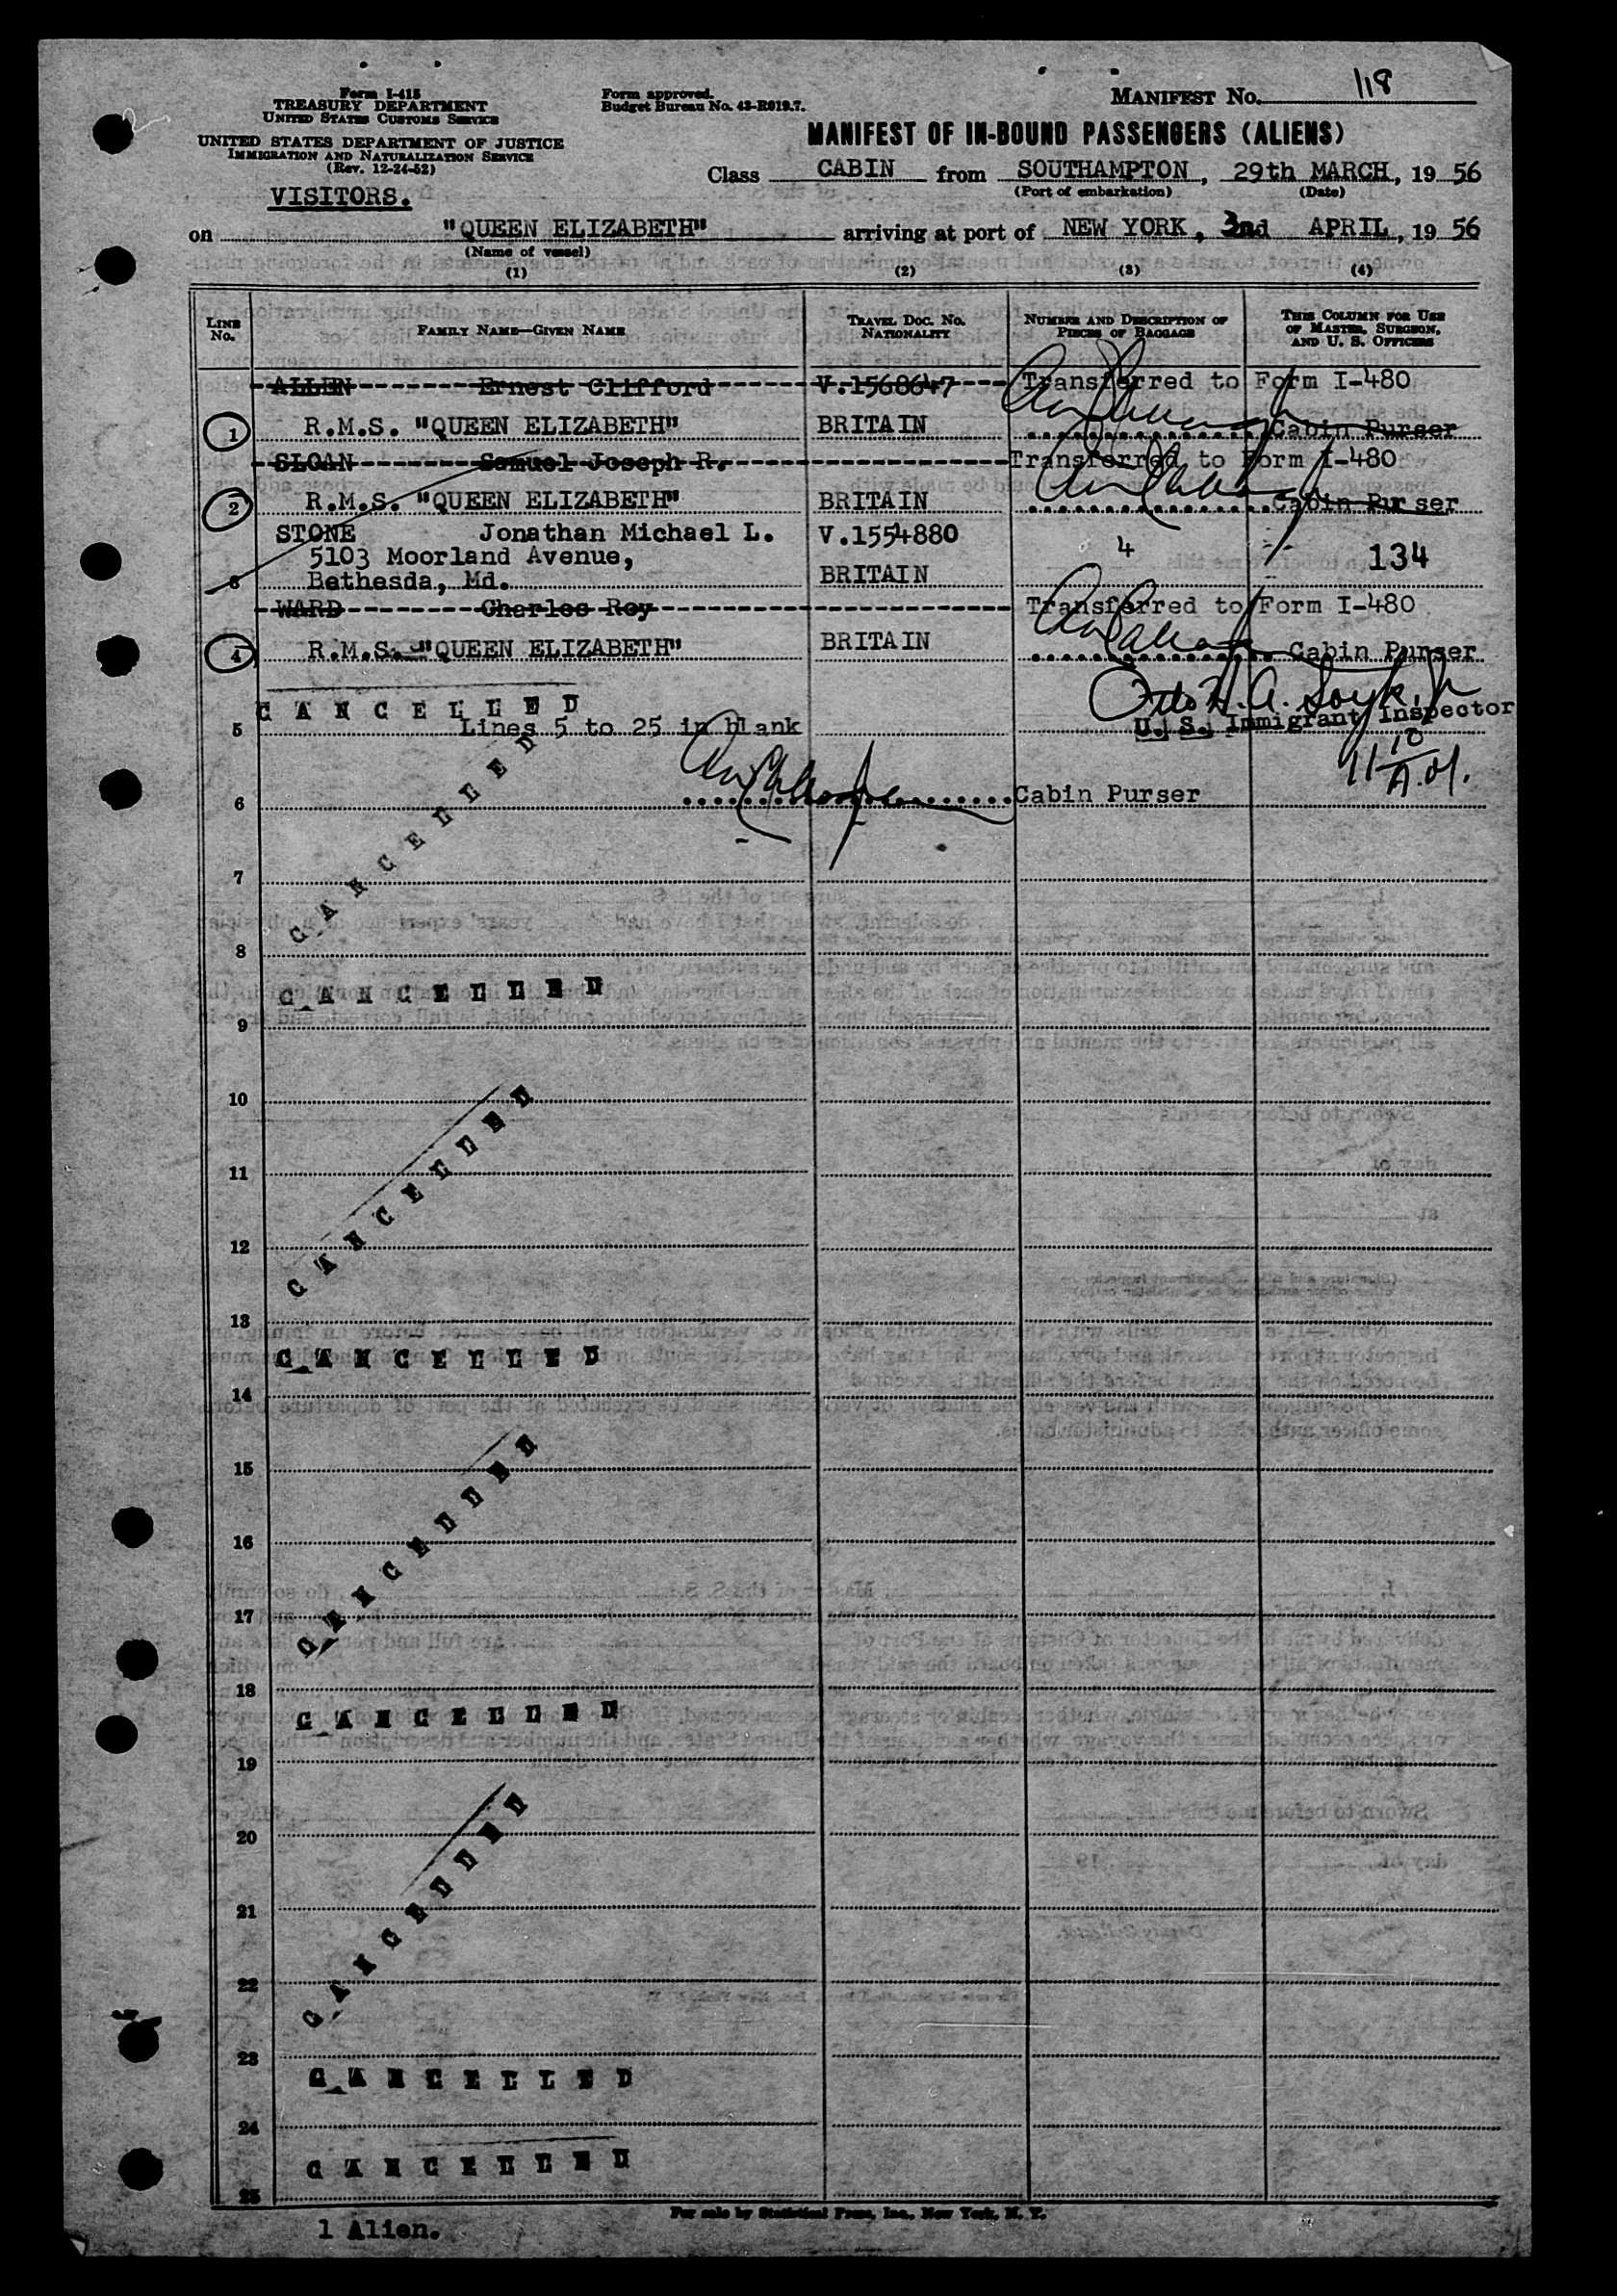 Form I-415
TREASURY DEPARTMENT
UNITED STATES CUSTOMS SERVICE
UNITED STATES DEPARTMENT OF JUSTICE
IMMIGRATION AND NATURALIZATION SERVICE
(Rev. 12-24-52)
VISITORS.
Form approved.
Budget Bureau No. 43-R019.7.
MANIFEST No. 118
MANIFEST OF IN-BOUND PASSENGERS (ALIENS)
Class CABIN from SOUTHAMPTON, 29th MARCH, 19 56
(Port of embarkation) (Date)
on "QUEEN ELIZABETH" arriving at port of NEW YORK, 3nd APRIL, 19 56
(Name of vessel)
(1) (2) (3) (4)
LINE No. FAMILY NAME—GIVEN NAME TRAVEL DOC. NO. NATIONALITY NUMBER AND DESCRIPTION OF PIECES OF BAGGAGE THIS COLUMN FOR USE OF MASTER, SURGEON, AND U. S. OFFICERS
ALLEN Ernest Clifford V.1568647 Transferred to Form I-480
1 R.M.S. "QUEEN ELIZABETH" BRITAIN Cabin Purser
SLOAN Samuel Joseph R. Transferred to Form I-480
2 R.M.S. "QUEEN ELIZABETH" BRITAIN Cabin Purser
STONE Jonathan Michael L. V.1554880
5103 Moorland Avenue, 4 134
3 Bethesda, Md. BRITAIN
WARD Charles Roy Transferred to Form I-480
4 R.M.S. "QUEEN ELIZABETH" BRITAIN Cabin Purser
CANCELLED
5 Lines 5 to 25 in blank U. S. Immigrant Inspector
11 10 A.M.
CANCELLED
6 Cabin Purser
7
8
CANCELLED
9
10
CANCELLED
11
12
13
CANCELLED
14
15
CANCELLED
16
17
18
CANCELLED
19
20
CANCELLED
21
22
23
CANCELLED
24
CANCELLED
25
For sale by Statistical Press, Inc., New York, N. Y.
1 Alien.